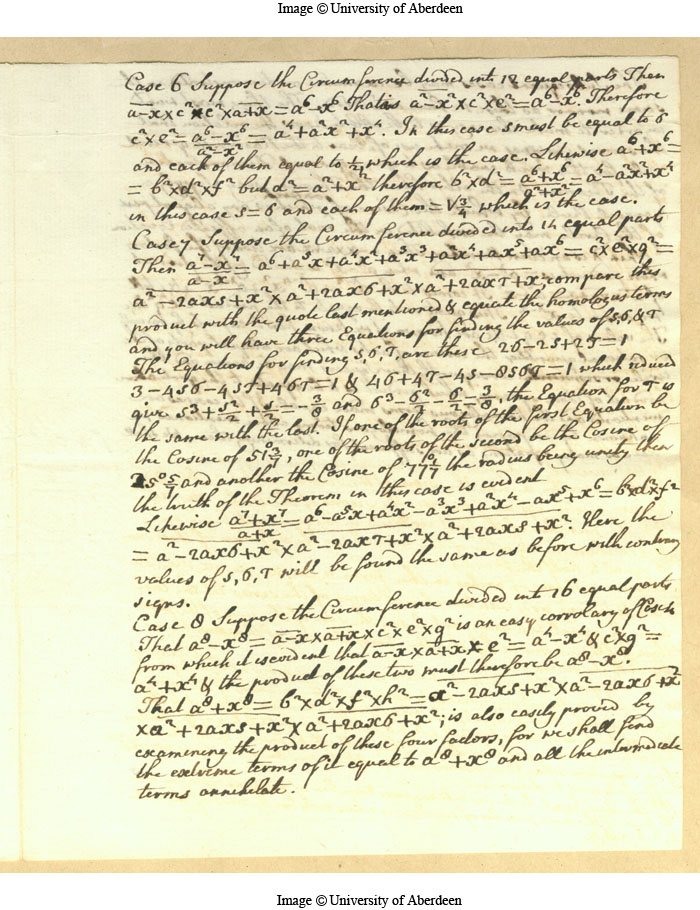 Image © University of Aberdeen
Case 6 Suppose the Circumference divided into 12 equal parts Then
a-x×c²×e²×a+x=a⁶-x⁶. That is a²-x²×c²×e²=a⁶-x⁶. Therefore
c²×e²=a⁶-x⁶/a²-x²=a⁴+a²x²+x⁴. In this case s must be equal to 6
and each of them equal to ½ which is the case. Likewise a⁶+x⁶=
=b²×d²×f² but d²=a²+x² therefore b²×d²=a⁶+x⁶/a²+x²=a⁴-a²x²+x⁴
in this case s=6 and each of them=√¾ which is the case.
Case 7 Suppose the Circumference divided into 14 equal parts
Then a⁷-x⁷/a-x=a⁶+a⁵x+a⁴x²+a³x³+a²x⁴+ax⁵+x⁶=c²×e²×g²=
a²-2axs+x²×a²+2ax6+x²×a²+2axT+x²; compare this
product with the quote last mentioned & equate the homologus terms
and you will have three Equations for finding the values of s,6,&T
The Equations for finding s,6,T, are these 26-2s+2T=1
3-4s6-4sT+46T=1 & 46+4T-4s-8s6T=1 which reduced
give s³+s²/2+s/2=-3/8 and 6³-6²/2-6/2=-3/8, the Equation for T is
the same with the last. If one of the roots of the first Equation be
the Cosine of 51°3/7, one of the roots of the second be the Cosine of
25°5/7 and another the Cosine of 77°1/7 the radius being unity then
the truth of the Theorem in this case is evident
Likewise a⁷+x⁷/a+x=a⁶-a⁵x+a⁴x²-a³x³+a²x⁴-ax⁵+x⁶=b²×d²×f²
=a²-2ax6+x²×a²-2axT+x²×a²+2axs+x². Here the
values of s,6,T will be found the same as before with contrary
signs.
Case 8 Suppose the Circumference divided into 16 equal parts
That a⁸-x⁸=a-x×a+x×c²×e²×g² is an easy corrolary of Case 4
from which it is evident that a-x×a+x×e²=a⁴-x⁴ & c²×g²=
a⁴+x⁴ & the product of these two must therefore be a⁸-x⁸.
That a⁸+x⁸=b²×d²×f²×h²=a²-2axs+x²×a²-2ax6+x²
×a²+2axs+x²×a²+2ax6+x²; is also easily proved by
examining the product of these four factors, for we shall find
the extreme terms of it equal to a⁸+x⁸ and all the intermediate
terms annihilate.
Image © University of Aberdeen